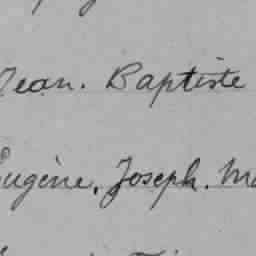 Jean. Baptiste
Eugène, Joseph. Ma